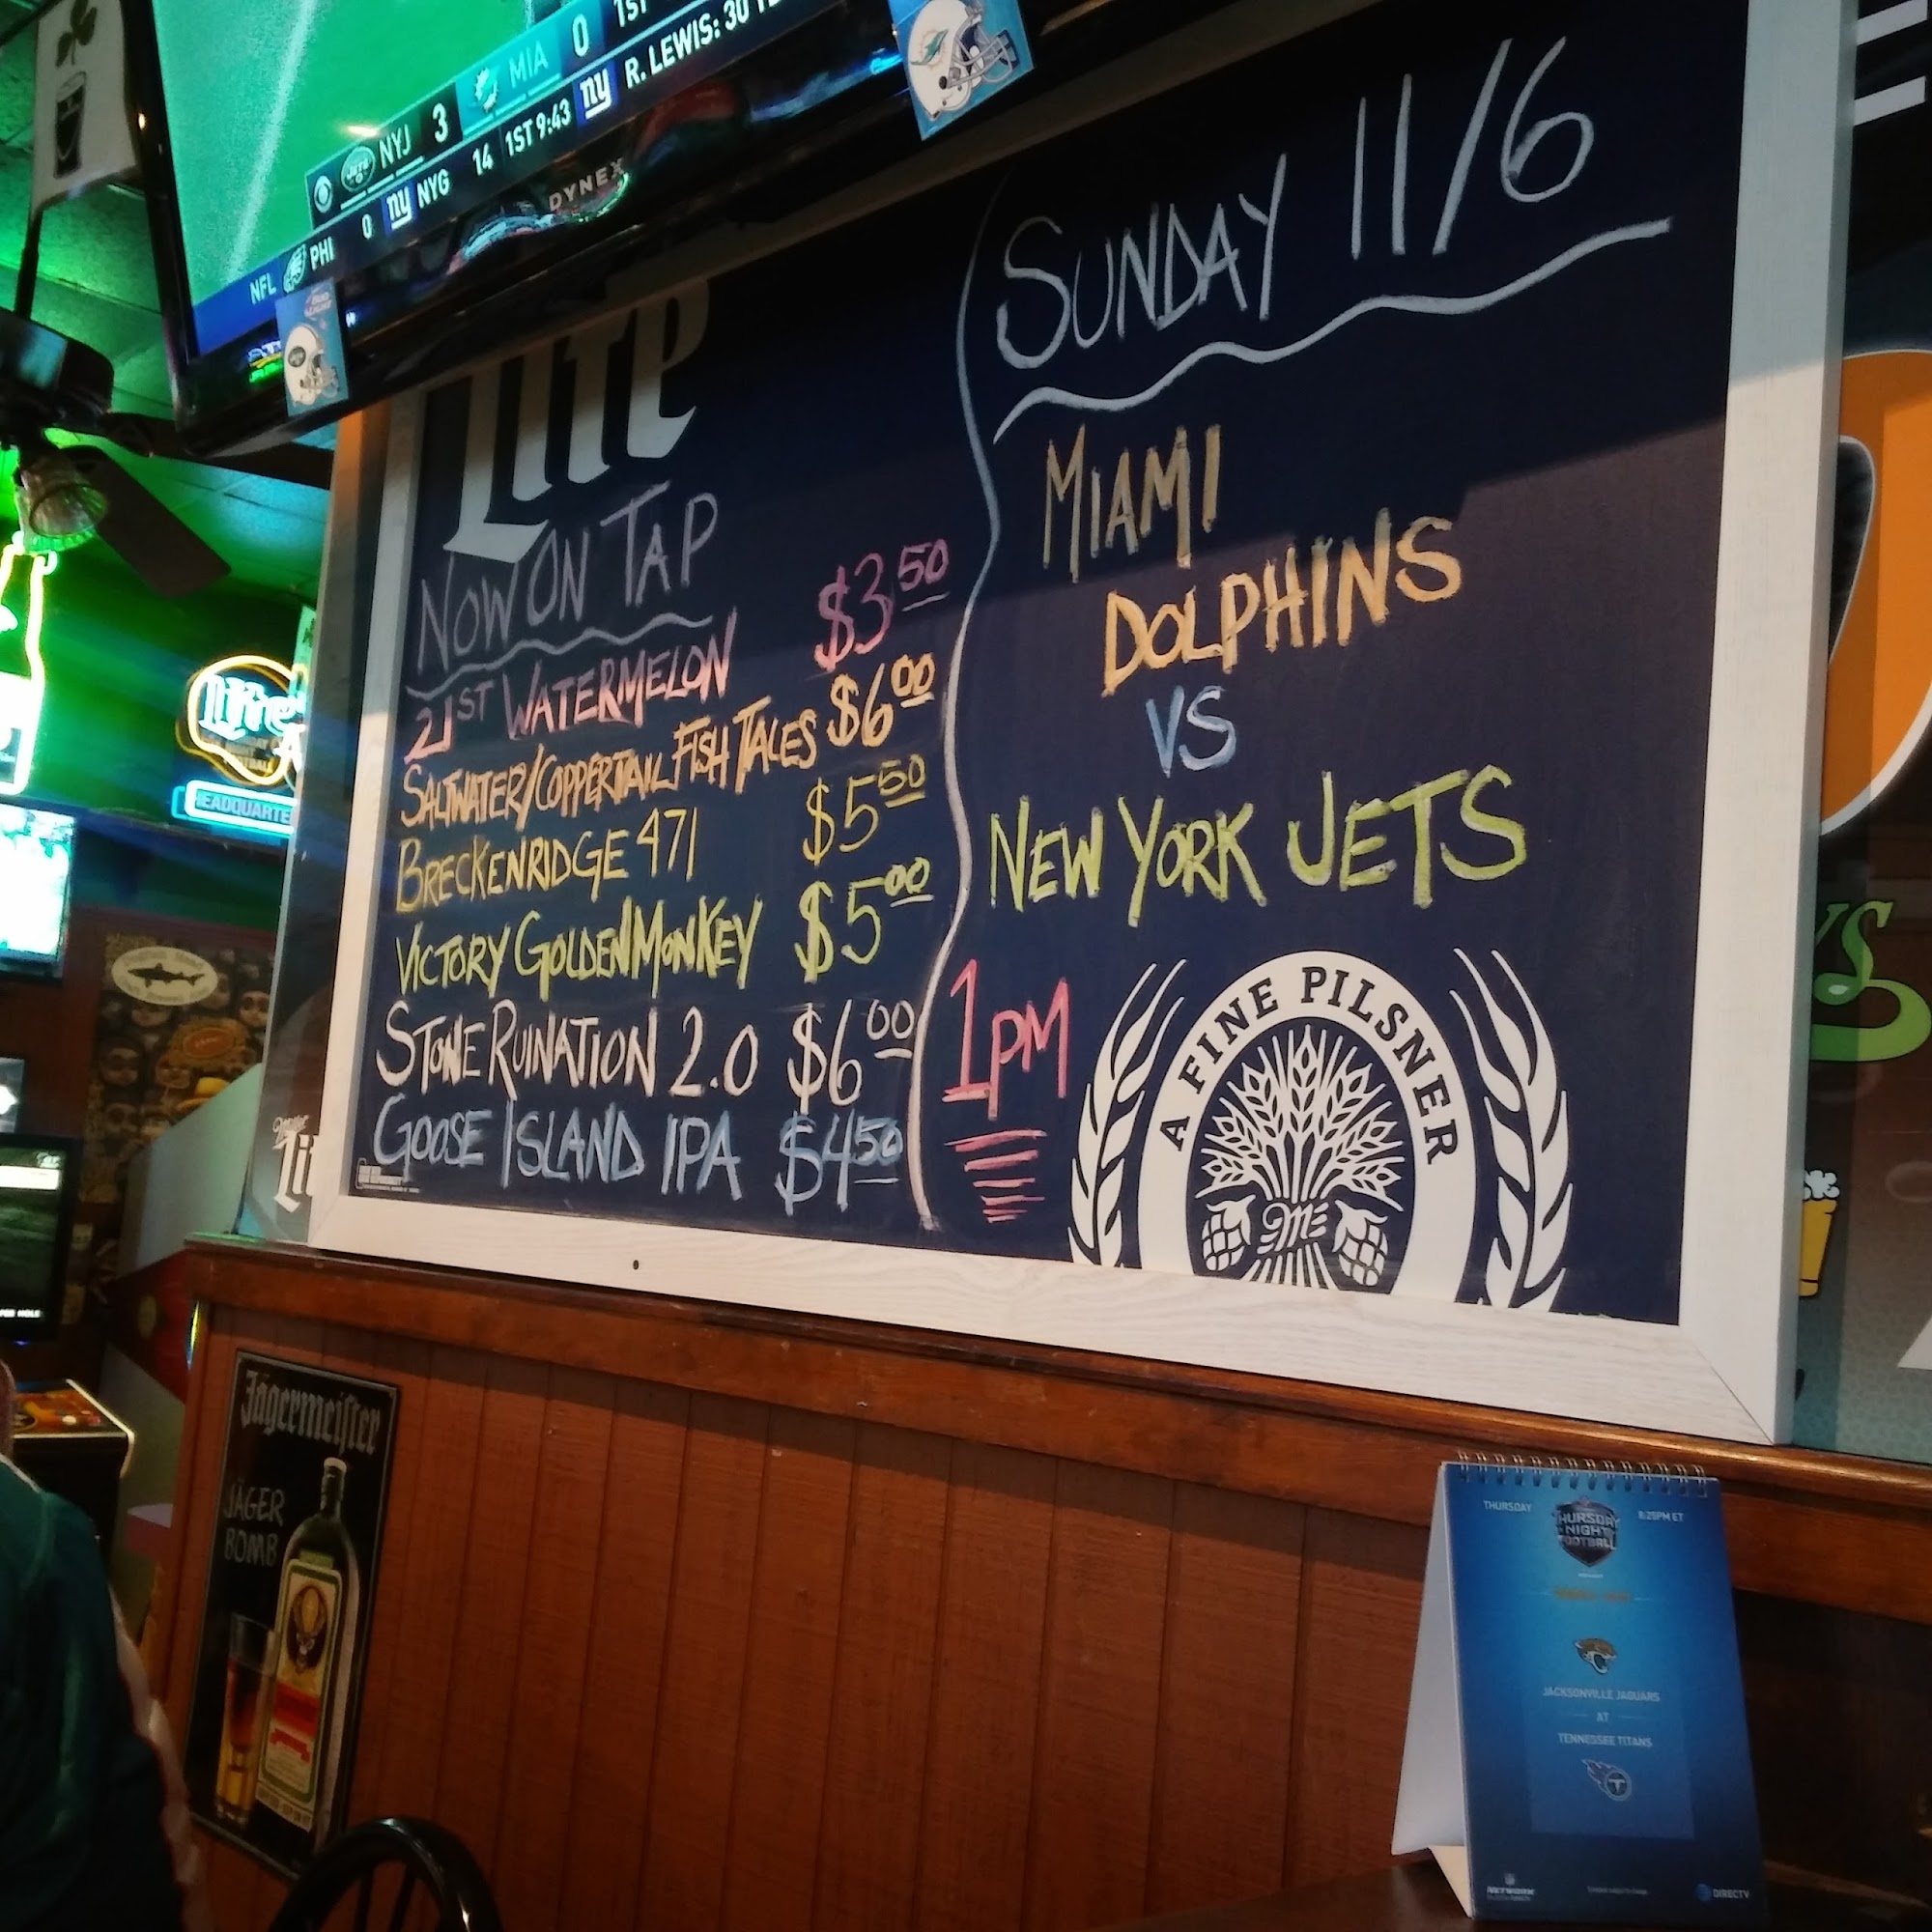 NYJ 3 MIA 0 1ST
NFL PHI 0 NYG 14 1ST 9:43 R. LEWIS: 30
DYNEX
Lite
NOW ON TAP
21ST WATERMELON $3.50
SALTWATER/COPPERTAIL FISH TALES $6.00
BRECKENRIDGE 471 $5.50
VICTORY GOLDEN MONKEY $5.00
STONE RUINATION 2.0 $6.00
GOOSE ISLAND IPA $4.50
SUNDAY 11/6
MIAMI
DOLPHINS
VS
NEW YORK JETS
1PM
A FINE PILSNER
Lite
HEADQUARTE
Lit
Jägermeister
JÄGER
BOMB
THURSDAY 8:25PM ET
THURSDAY
NIGHT
FOOTBALL
JACKSONVILLE JAGUARS
AT
TENNESSEE TITANS
NETWORK
DIRECTV